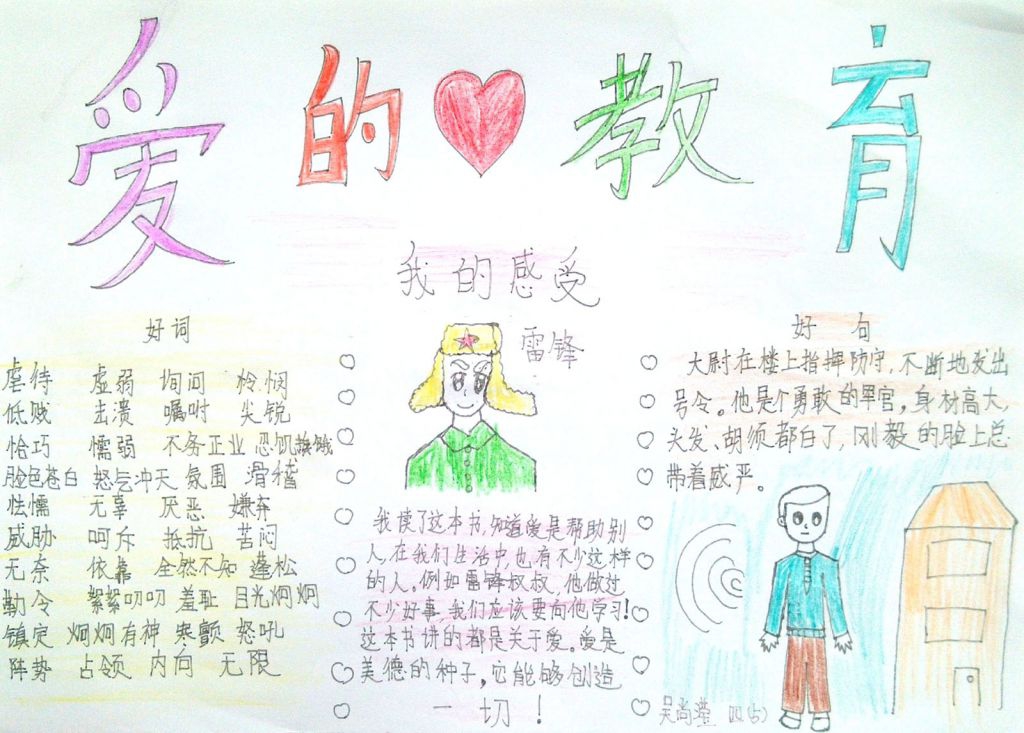 爱的教育
我的感受
好词
虐待 虚弱 询问 怜悯
低贱 去溃 嘱咐 尖锐
恰巧 懦弱 不务正业 忍饥挨饿
脸色苍白 怒气冲天 氛围 滑稽
怯懦 无辜 厌恶 嫌弃
威胁 呵斥 抵抗 苦闷
无奈 依靠 全然不知 蓬松
勒令 絮絮叨叨 羞耻 目光炯炯
镇定 炯炯有神 怒吼
阵势 占领 内向 无限
雷锋
我读了这本书,知道爱是帮助别
人,在我们生活中,也有不少这样
的人。例如雷锋叔叔,他做过
不少好事,我们应该要向他学习!
这本书讲的都是关于爱。爱是
美德的种子,它能够创造
一切!
好句
大尉在楼上指挥防守,不断地发出
号令。他是个勇敢的军官,身材高大,
头发、胡须都白了,刚毅的脸上总
带着威严。
吴尚滢 四(5)